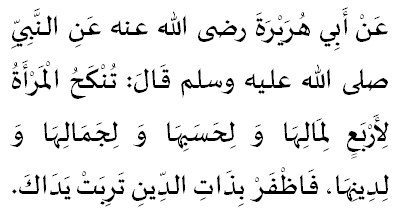 عَنْ أَبِي هُرَيْرَةَ رضى الله عنه عَنِ النَّبِيِّ
صلى الله عليه وسلم قَالَ: تُنْكَحُ الْمَرْأَةُ
لِأَرْبَعٍ لِمَالِهَا وَ لِحَسَبِهَا وَ لِجَمَالِهَا وَ
لِدِينِهَا، فَاظْفَرْ بِذَاتِ الدِّينِ تَرِبَتْ يَدَاكَ.